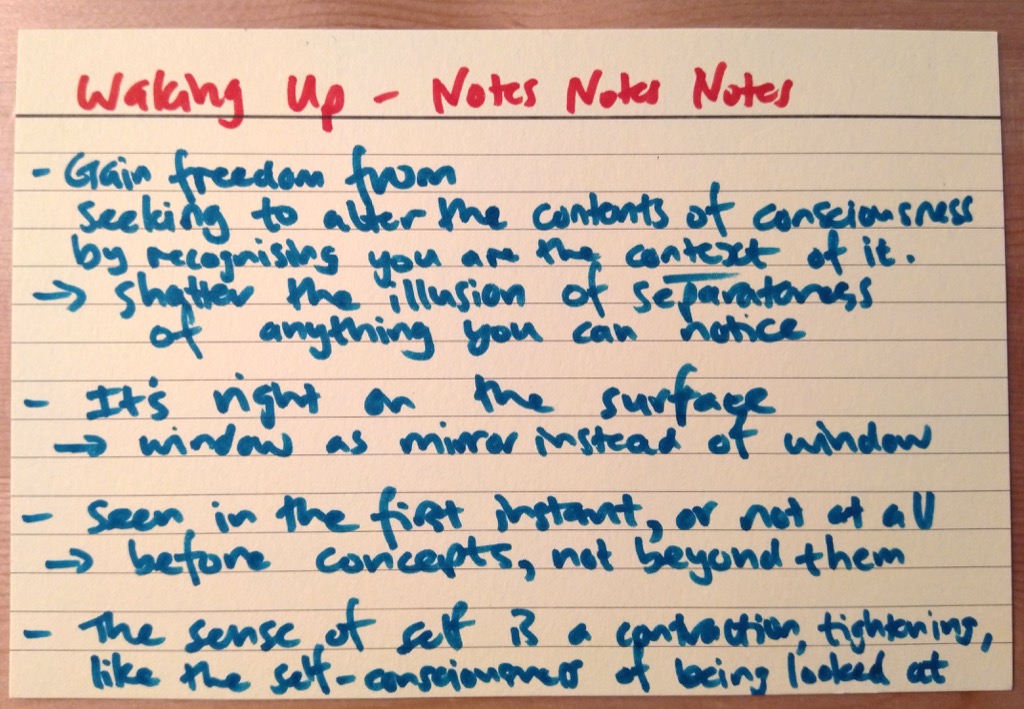 Waking Up - Notes Notes Notes
- Gain freedom from
seeking to alter the contents of consciousness
by recognising you are the context of it.
→ shatter the illusion of separateness
of anything you can notice
- It's right on the surface
→ window as mirror instead of window
- Seen in the first instant, or not at all
→ before concepts, not beyond them
- The sense of self is a contraction, tightening,
like the self-consciousness of being looked at